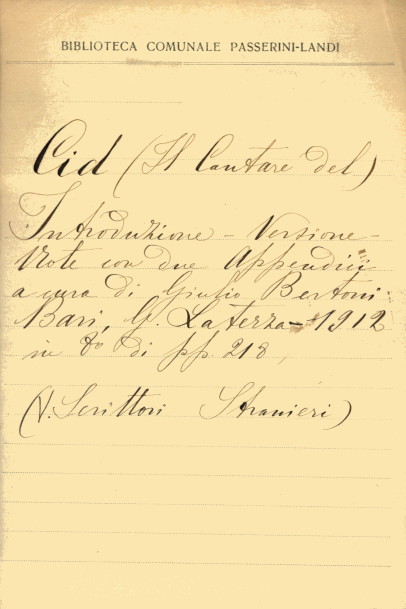 BIBLIOTECA COMUNALE PASSERINI-LANDI
Cid (Il Cantare del)
Introduzione - Versione -
Note con due Appendici
a cura di Giulio Bertoni
Bari, G. Laterza - 1912
in 8º di pp. 218,
(V. Scrittori Stranieri)